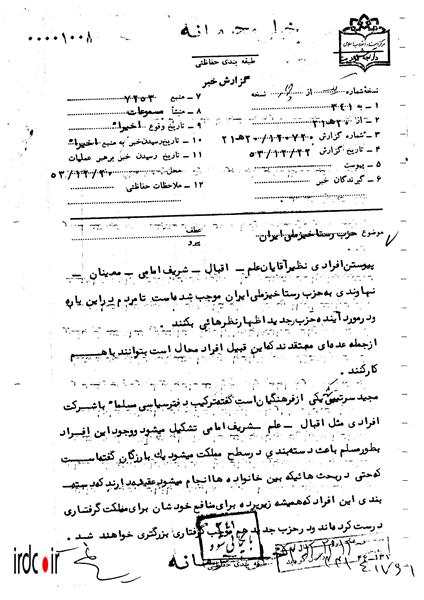 00001008
مرکز بررسی اسناد تاریخی
طبقه بندی حفاظتی
گزارش خبر
نسخه شماره از نسخه
۷ – منبع ۷۲۵۳
۱ – به ۳۴۱
۸ – منشأ مسموعات
۲ – از ۲۰هـ۲۱
۹ – تاریخ وقوع اخیرا"
۳ – شماره گزارش ۲۰/۱۲۰۷۲۰هـ۲۱
۱۰ – تاریخ رسیدن خبر به منبع اخیرا"
۴ – تاریخ گزارش ۵۳/۱۲/۲۲
۱۱ – تاریخ رسیدن خبر برهبر عملیات
۵ – پیوست
محل ۵۳/۱۲/۲۰
۶ – گیرندگان خبر
۱۲ – ملاحظات حفاظتی
موضوع حزب رستاخیز ملی ایران
عطف
پیرو
پیوستن افرادی نظیر آقایان علم – اقبال – شریف امامی – معینیان –
نهاوندی به حزب رستاخیز ملی ایران موجب شده است تا مردم در این باره
و در مورد آینده حزب جدید اظهار نظرهائی بکنند .
از جمله عده‌ای معتقدند که این قبیل افراد محال است بتوانند با هم
کار کنند .
مجید یکی از فرهنگیان است گفته ترکیب دفتر سیاسی مسلما" با شرکت
افرادی مثل اقبال – علم – شریف امامی تشکیل میشود و وجود این افراد
بطور مسلم باعث دسته بندی در سطح مملکت میشود یک بازرگان گفته است
که حتی در بحث هائیکه بین خانواده ها انجام میشود عقیده دارند که دسته
بندی این افراد که همیشه زیر پرده برای منافع خودشان برای مملکت گرفتاری
درست کرده‌اند و در حزب جدید هم موجب گرفتاری بزرگتری خواهند شد .
بایگانی شود
طبقه بندی حفاظتی
irdc.ir